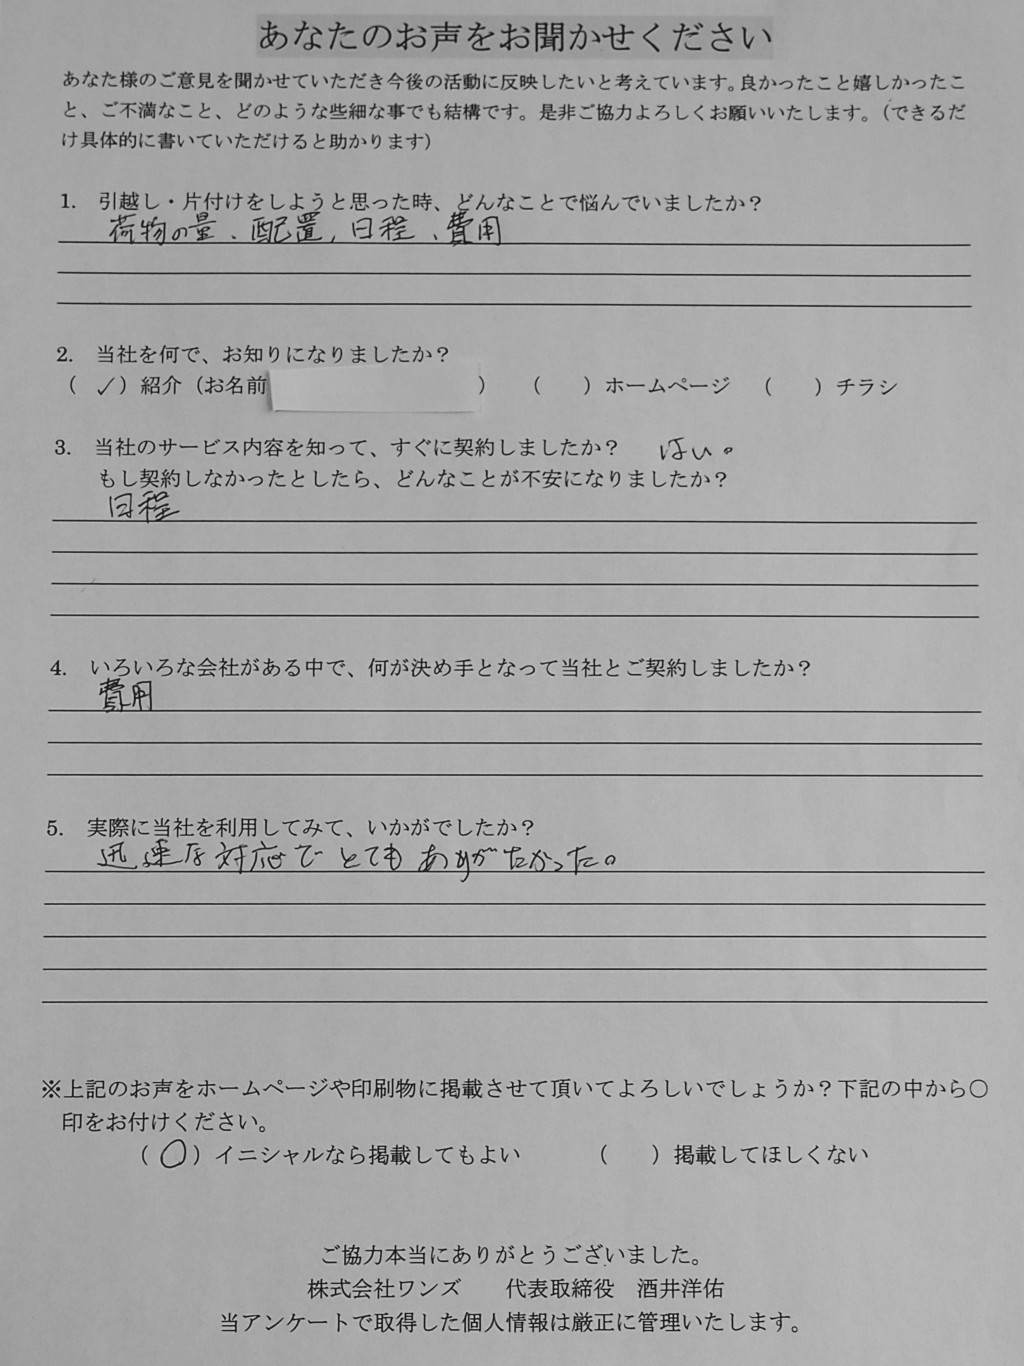 あなたのお声をお聞かせください
あなた様のご意見を聞かせていただき今後の活動に反映したいと考えています。良かったこと嬉しかったこ
と、ご不満なこと、どのような些細な事でも結構です。是非ご協力よろしくお願いいたします。（できるだ
け具体的に書いていただけると助かります）
1. 引越し・片付けをしようと思った時、どんなことで悩んでいましたか？
荷物の量、配置、日程、費用
2. 当社を何で、お知りになりましたか？
（ ✓ ）紹介（お名前 ） （ ）ホームページ （ ）チラシ
3. 当社のサービス内容を知って、すぐに契約しましたか？ はい。
もし契約しなかったとしたら、どんなことが不安になりましたか？
日程
4. いろいろな会社がある中で、何が決め手となって当社とご契約しましたか？
費用
5. 実際に当社を利用してみて、いかがでしたか？
迅速な対応でとてもありがたかった。
※上記のお声をホームページや印刷物に掲載させて頂いてよろしいでしょうか？下記の中から〇
印をお付けください。
（ 〇 ）イニシャルなら掲載してもよい （ ）掲載してほしくない
ご協力本当にありがとうございました。
株式会社ワンズ 代表取締役 酒井洋佑
当アンケートで取得した個人情報は厳正に管理いたします。